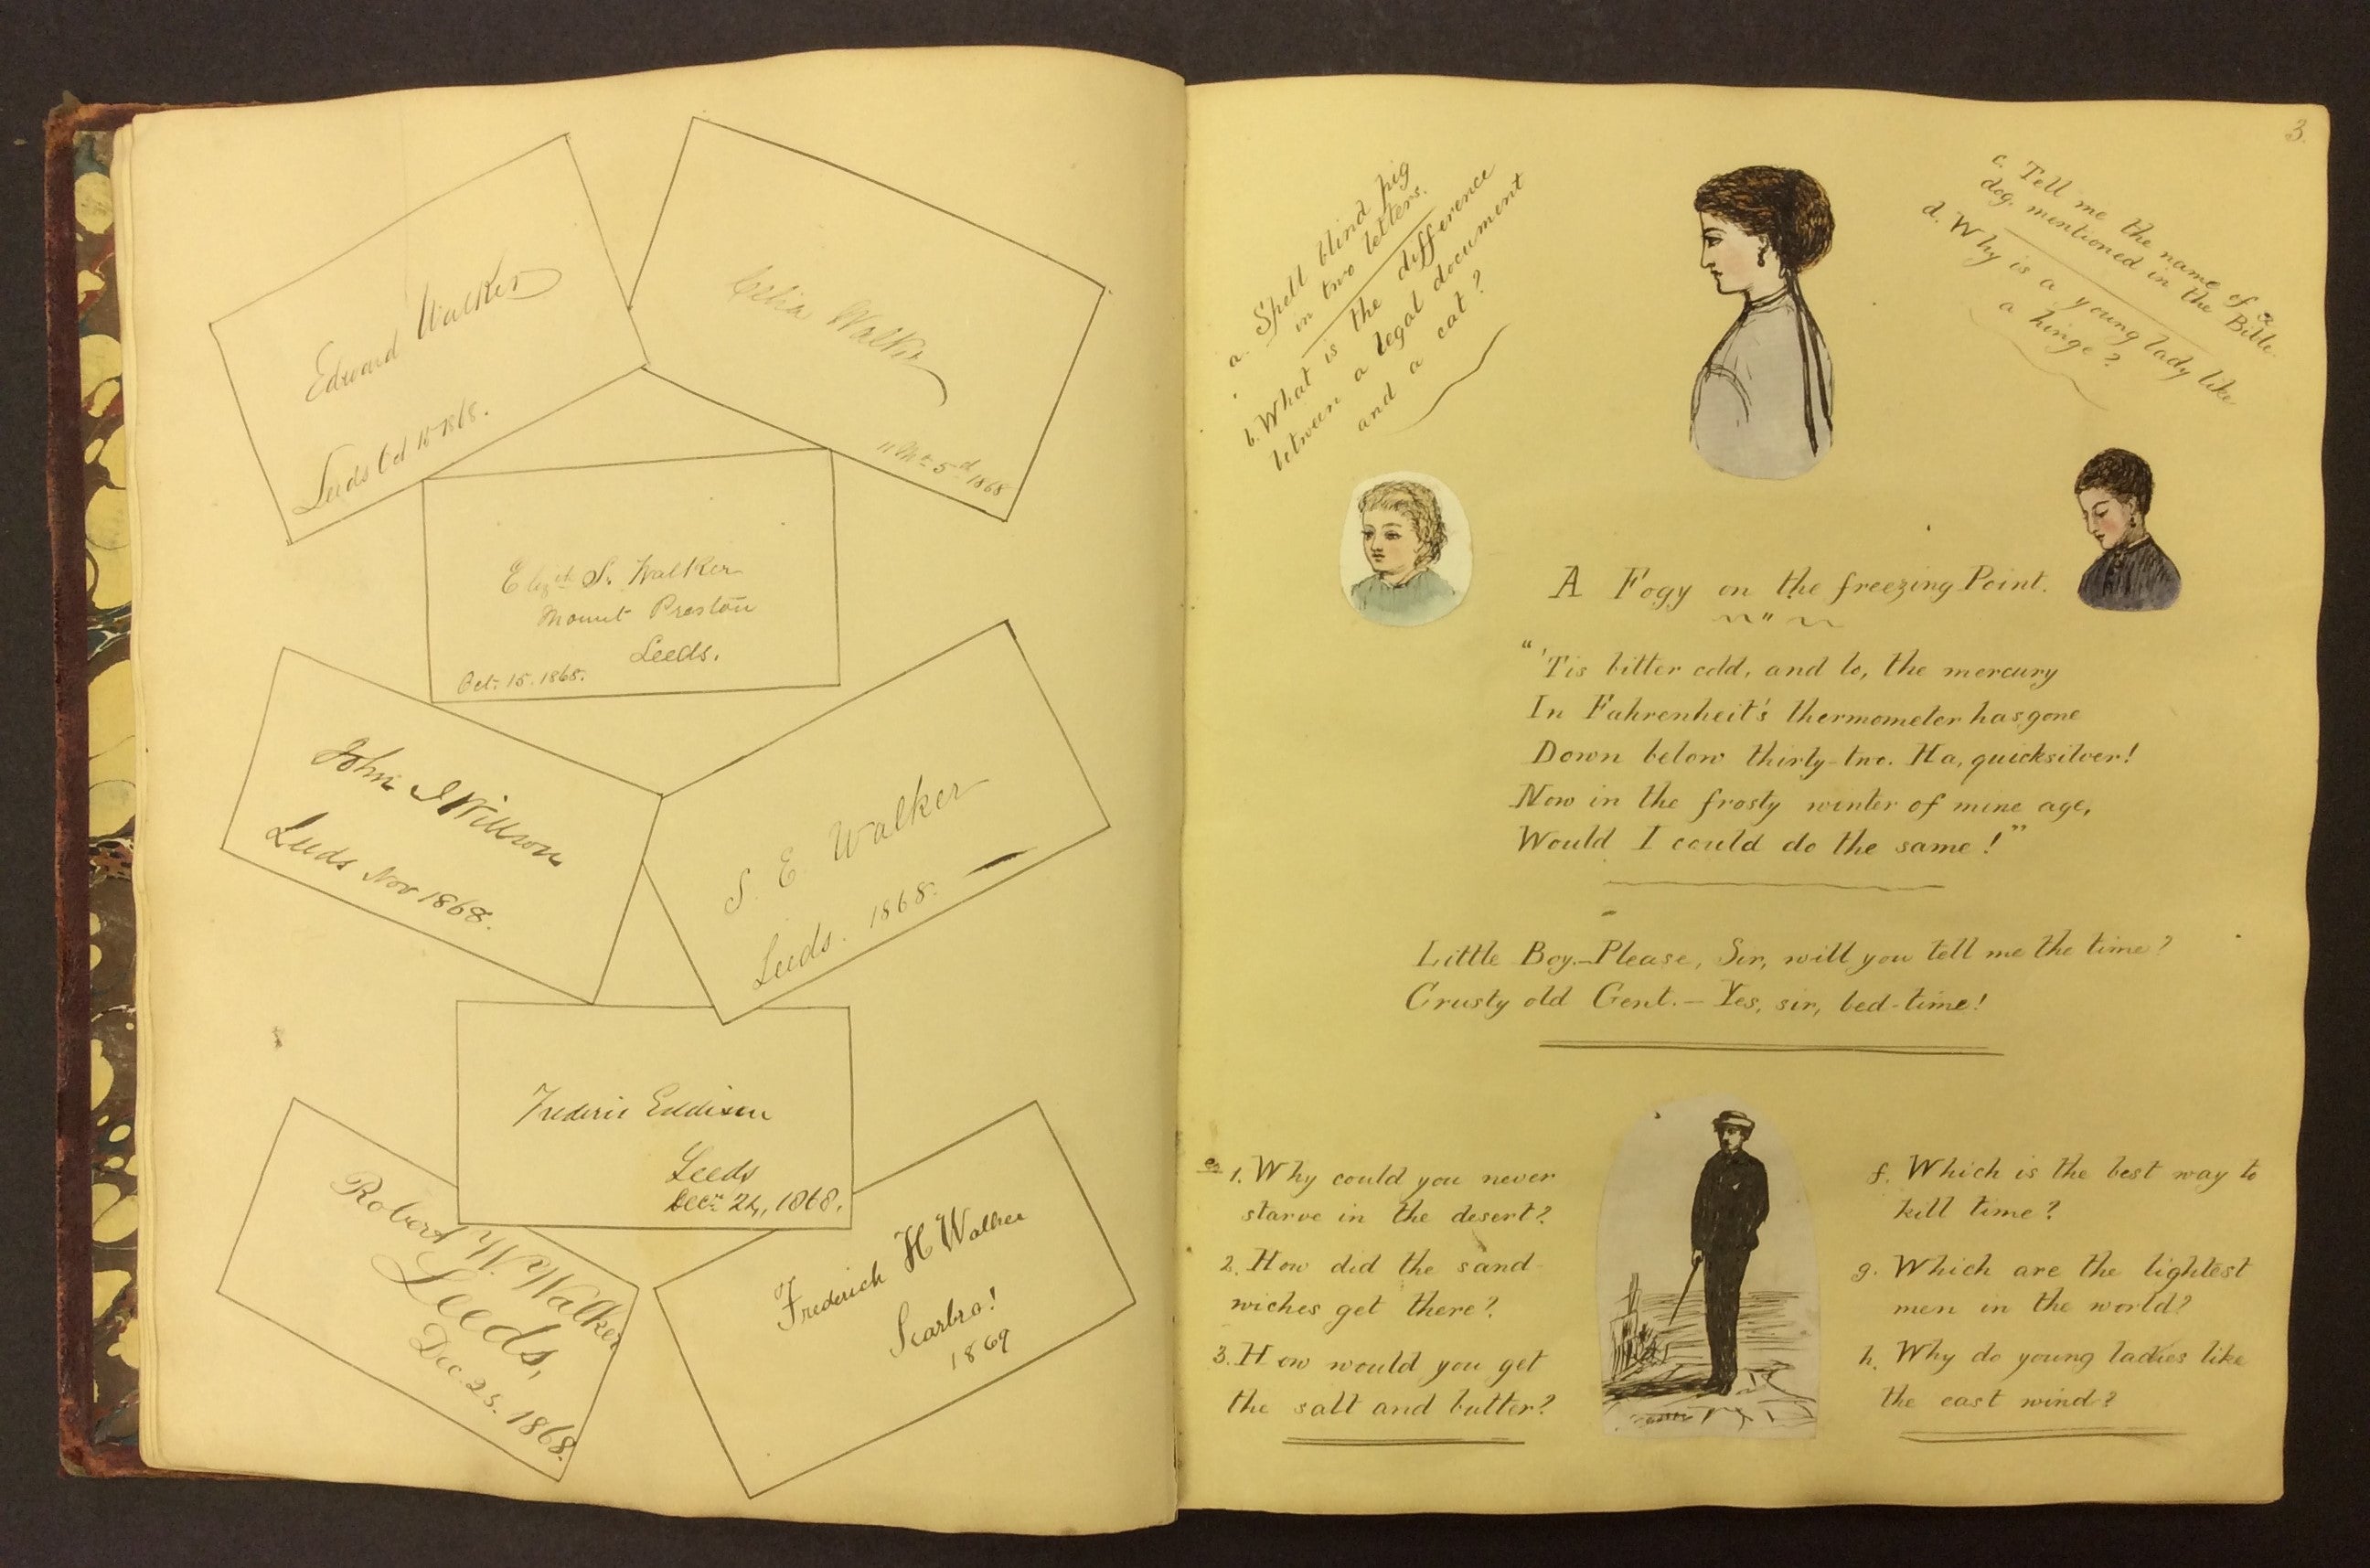 Edward Walker
Leeds Oct 15 1868.
Celia Walker
11 Mo 5th 1868
Elizth S. Walker
Mount Preston
Leeds.
Oct. 15. 1868.
John J Willson
Leeds Nov 1868.
S. E. Walker
Leeds. 1868.
Frederic Eddison
Leeds
Decr 24, 1868.
Robert W. Walker
Leeds,
Dec. 25. 1868.
Frederick H Walker
Scarbro!
1869
3.
a. Spell blind pig
in two letters.
b. What is the difference
between a legal document
and a cat?
c. Tell me the name of a
dog, mentioned in the Bible.
d. Why is a young lady like
a hinge?
A Fogy on the freezing Point.
"'Tis bitter cold, and lo, the mercury
In Fahrenheit's thermometer has gone
Down below thirty-two. Ha, quicksilver!
Now in the frosty winter of mine age,
Would I could do the same!"
Little Boy.—Please, Sir, will you tell me the time?
Crusty old Gent.— Yes, sir, bed-time!
e. 1. Why could you never
starve in the desert?
2. How did the sand-
wiches get there?
3. How would you get
the salt and butter?
f. Which is the best way to
kill time?
g. Which are the lightest
men in the world?
h. Why do young ladies like
the east wind?